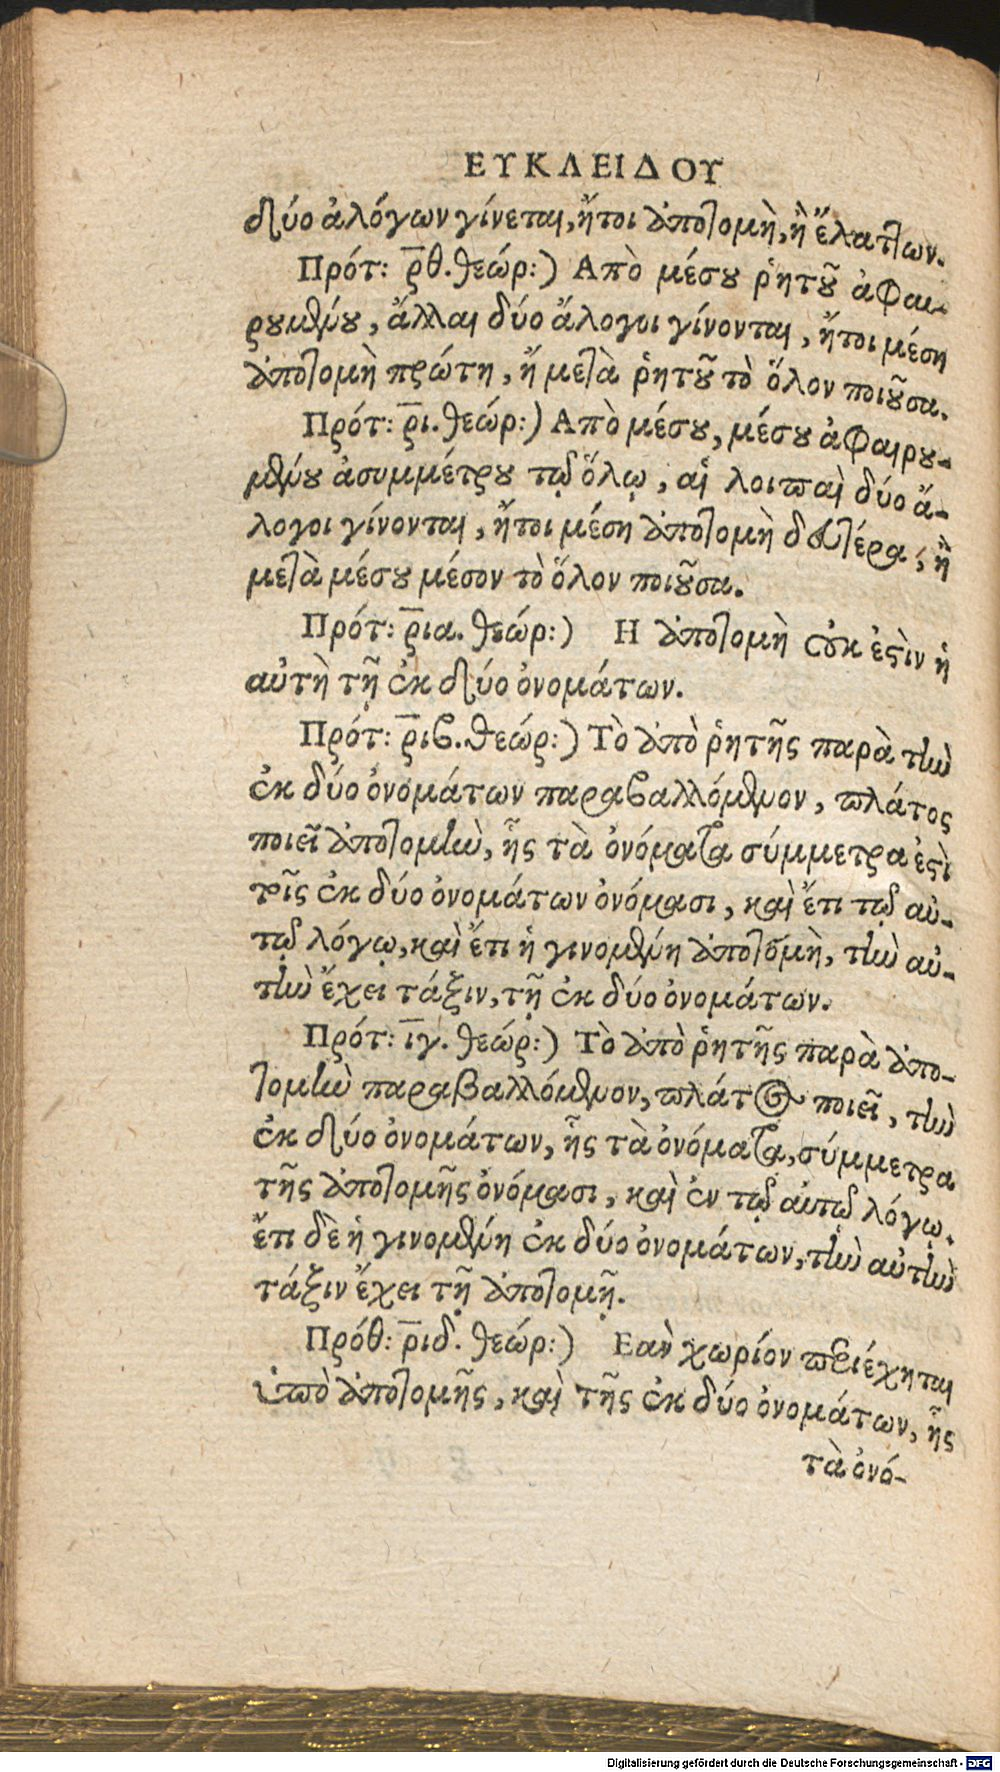 ΕΥΚΛΕΙΔΟΥ
δύο ἀλόγων γίνεται, ἤτοι ἀποτομὴ, ἢ ἐλάττων.
Πρότ: ρ̅θ. θεώρ:) Απὸ μέσου ῥητοῦ ἀφαι-
ρουμένου, ἄλλαι δύο ἄλογοι γίνονται, ἤτοι μέση
ἀποτομὴ πρώτη, ἢ μετὰ ῥητοῦ τὸ ὅλον ποιοῦσα.
Πρότ: ρ̅ι. θεώρ:) Απὸ μέσου, μέσου ἀφαιρου-
μένου ἀσυμμέτρου τῷ ὅλῳ, αἱ λοιπαὶ δύο ἄ-
λογοι γίνονται, ἤτοι μέση ἀποτομὴ δευτέρα, ἢ
μετὰ μέσου μέσον τὸ ὅλον ποιοῦσα.
Πρότ: ρ̅ια. θεώρ:) Η ἀποτομὴ οὐκ ἐςὶν ἡ
αὐτὴ τῇ ἐκ δύο ὀνομάτων.
Πρότ: ρ̅ιβ. θεώρ:) Τὸ ἀπὸ ῥητῆς παρὰ τὴν
ἐκ δύο ὀνομάτων παραβαλλόμενον, πλάτος
ποιεῖ ἀποτομὴν, ἧς τὰ ὀνόματα σύμμετρα ἐςὶ
τοῖς ἐκ δύο ὀνομάτων ὀνόμασι, καὶ ἔτι τῷ αὐ-
τῷ λόγῳ, καὶ ἔτι ἡ γινομένη ἀποτομὴ, τὴν αὐ-
τὴν ἔχει τάξιν, τῇ ἐκ δύο ὀνομάτων.
Πρότ: ι̅γ. θεώρ:) Τὸ ἀπὸ ῥητῆς παρὰ ἀπο-
τομὴν παραβαλλόμενον, πλάτος ποιεῖ, τὴν
ἐκ δύο ὀνομάτων, ἧς τὰ ὀνόματα, σύμμετρα
τῆς ἀποτομῆς ὀνόμασι, καὶ ἐν τῷ αὐτῷ λόγῳ.
ἔτι δὲ ἡ γινομένη ἐκ δύο ὀνομάτων, τὴν αὐτὴν
τάξιν ἔχει τῇ ἀποτομῇ.
Πρόθ: ρ̅ιδ. θεώρ:) Εαν χωρίον περιέχηται
ὑπὸ ἀποτομῆς, καὶ τῆς ἐκ δύο ὀνομάτων, ἧς
τὰ ὀνό-
Digitalisierung gefördert durch die Deutsche Forschungsgemeinschaft - DFG